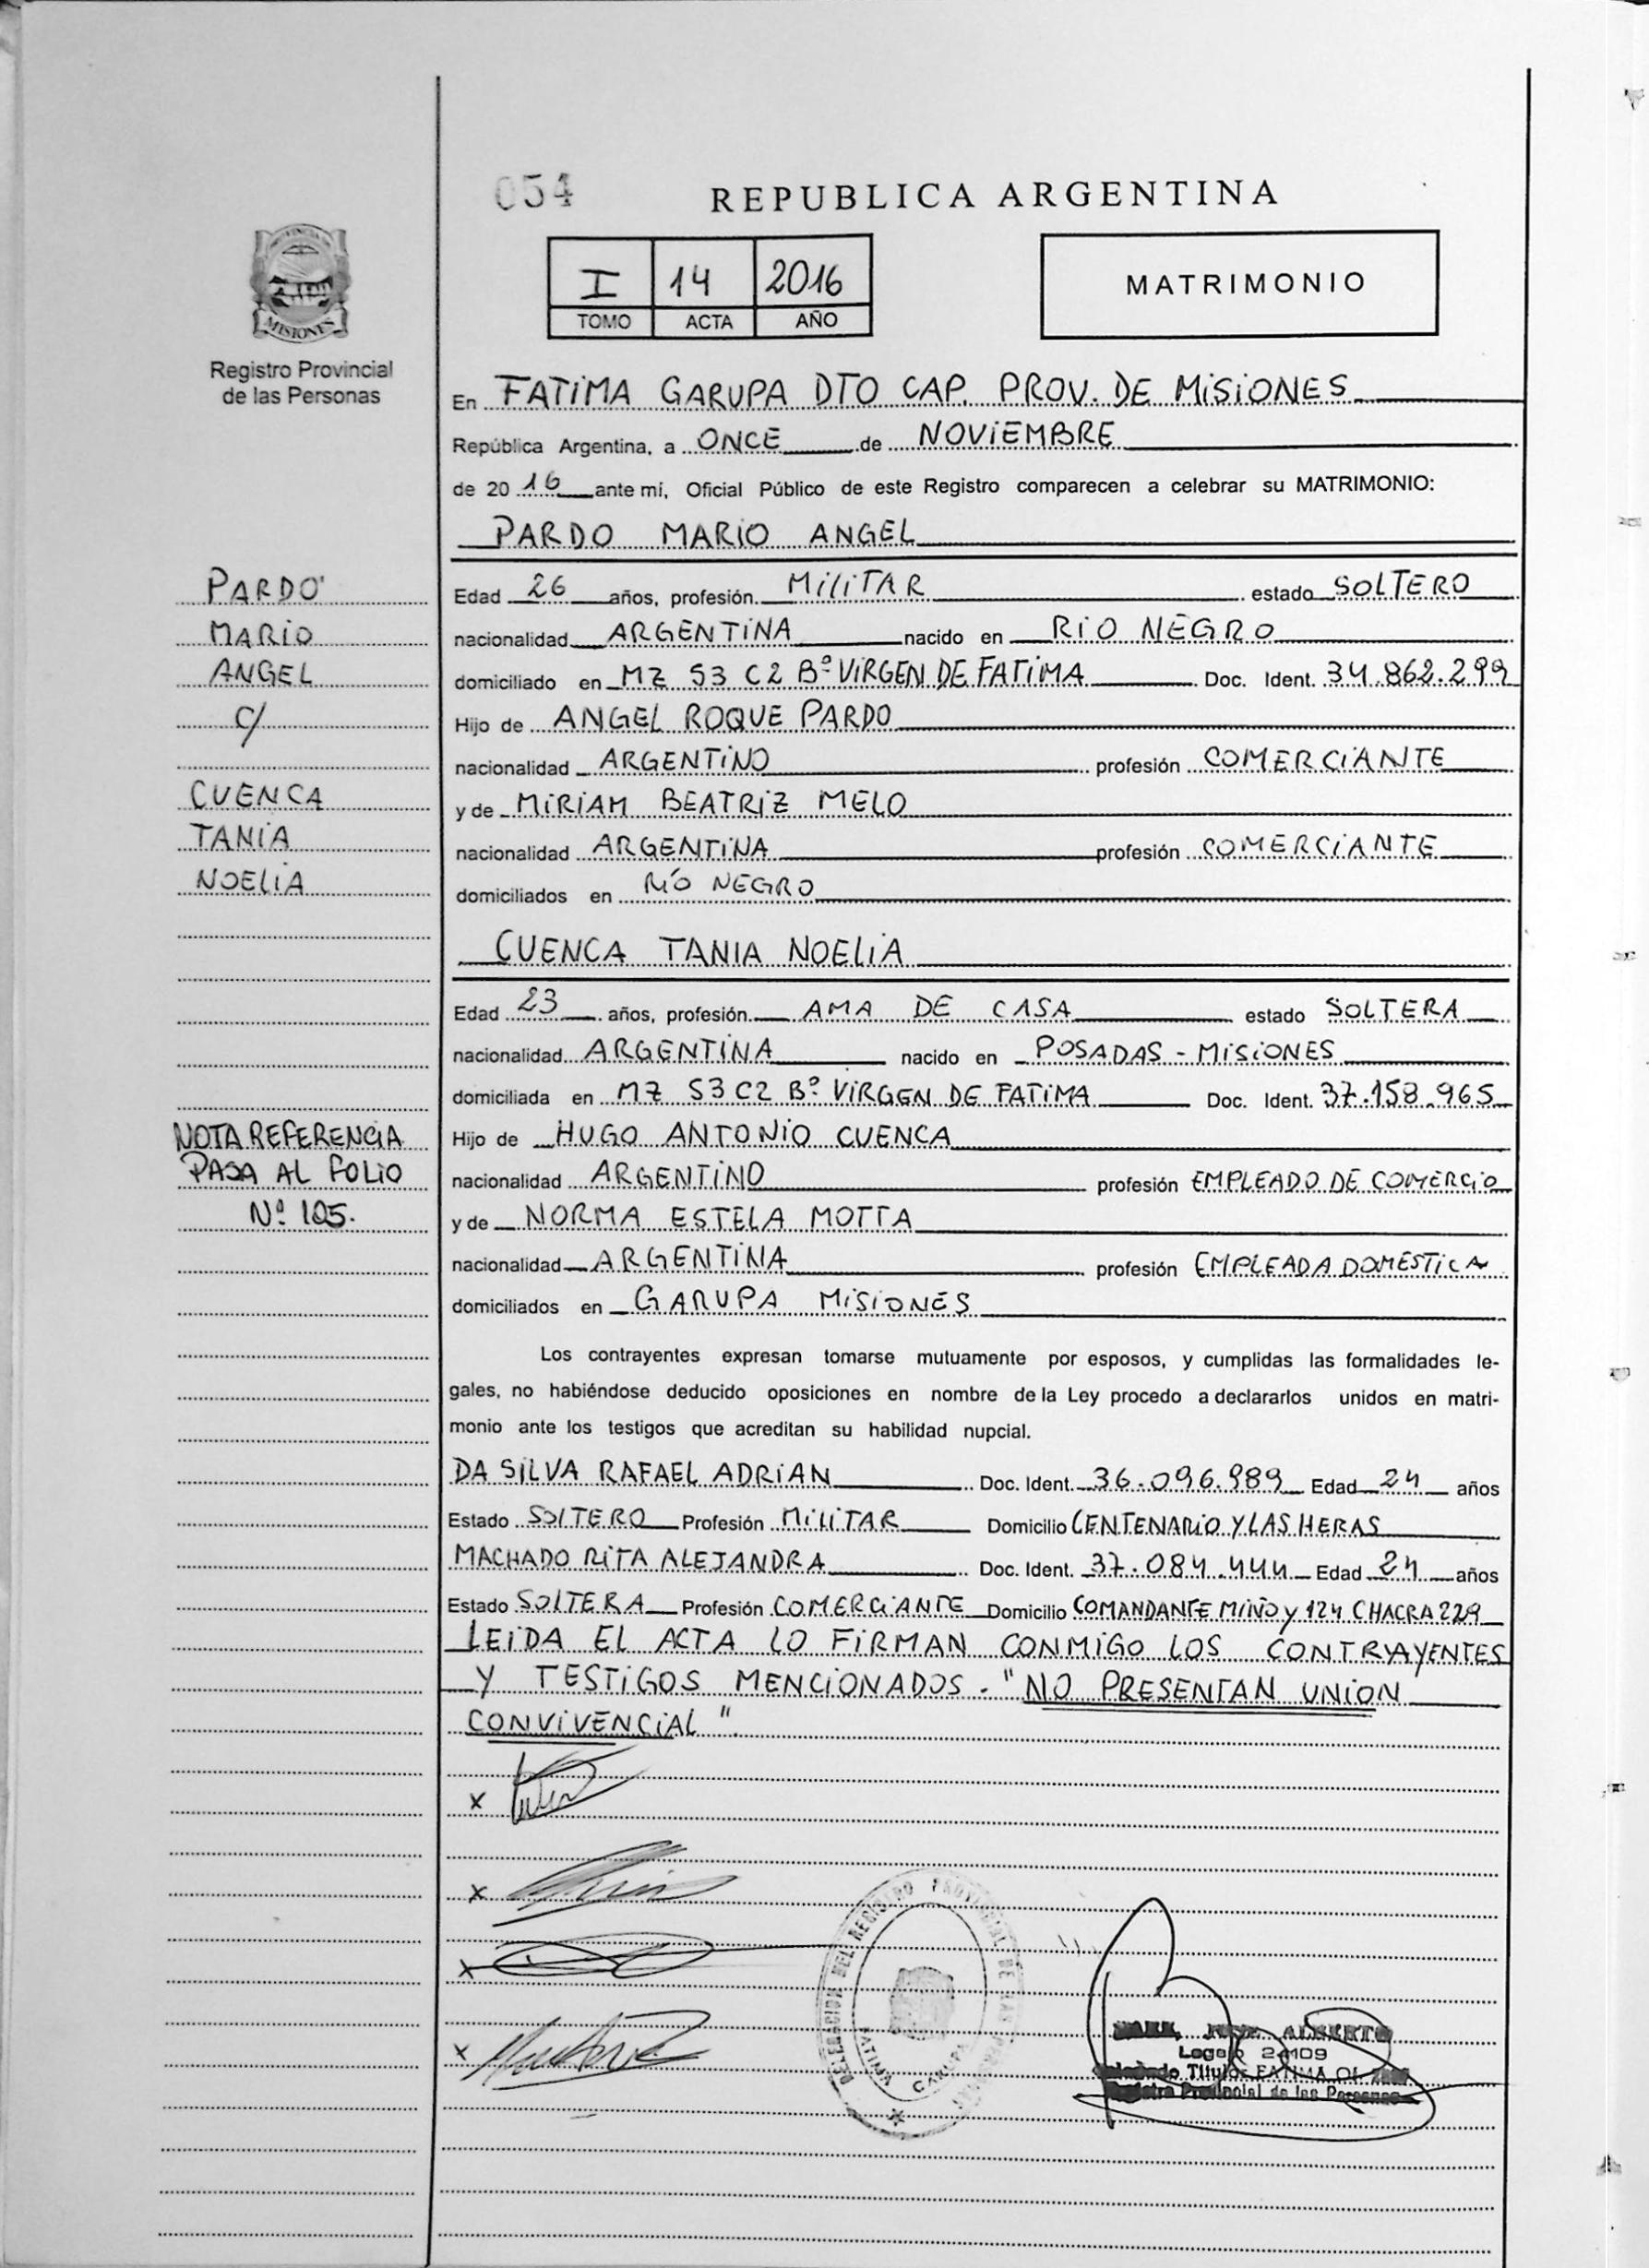 054
REPUBLICA ARGENTINA
I 14 2016
TOMO ACTA AÑO
MATRIMONIO
PROVINCIA DE
MISIONES
Registro Provincial
de las Personas
En FATIMA GARUPA DTO CAP. PROV. DE MISIONES
República Argentina, a ONCE de NOVIEMBRE
de 20 16 ante mí, Oficial Público de este Registro comparecen a celebrar su MATRIMONIO:
PARDO MARIO ANGEL
PARDO
MARIO
ANGEL
C/
CUENCA
TANIA
NOELIA
Edad 26 años, profesión MILITAR estado SOLTERO
nacionalidad ARGENTINA nacido en RIO NEGRO
domiciliado en MZ 53 C2 Bº VIRGEN DE FATIMA Doc. Ident. 34.862.299
Hijo de ANGEL ROQUE PARDO
nacionalidad ARGENTINO profesión COMERCIANTE
y de MIRIAM BEATRIZ MELO
nacionalidad ARGENTINA profesión COMERCIANTE
domiciliados en RÍO NEGRO
CUENCA TANIA NOELIA
Edad 23 años, profesión AMA DE CASA estado SOLTERA
nacionalidad ARGENTINA nacido en POSADAS - MISIONES
domiciliada en MZ 53 C2 Bº VIRGEN DE FATIMA Doc. Ident. 37.158.965
NOTA REFERENCIA
PASA AL FOLIO
Nº 105.
Hijo de HUGO ANTONIO CUENCA
nacionalidad ARGENTINO profesión EMPLEADO DE COMERCIO
y de NORMA ESTELA MOTTA
nacionalidad ARGENTINA profesión EMPLEADA DOMESTICA
domiciliados en GARUPA MISIONES
Los contrayentes expresan tomarse mutuamente por esposos, y cumplidas las formalidades le-
gales, no habiéndose deducido oposiciones en nombre de la Ley procedo a declararlos unidos en matri-
monio ante los testigos que acreditan su habilidad nupcial.
DA SILVA RAFAEL ADRIAN Doc. Ident. 36.096.989 Edad 24 años
Estado SOLTERO Profesión MILITAR Domicilio CENTENARIO Y LAS HERAS
MACHADO RITA ALEJANDRA Doc. Ident. 37.084.444 Edad 24 años
Estado SOLTERA Profesión COMERCIANTE Domicilio COMANDANTE MIÑO y 124 CHACRA 229
LEIDA EL ACTA LO FIRMAN CONMIGO LOS CONTRAYENTES
Y TESTIGOS MENCIONADOS. "NO PRESENTAN UNION
CONVIVENCIAL".
x
x
x
x
DELEGACION DEL REGISTRO PROVINCIAL DE LAS PERSONAS
GARUPA
JOSE ALBERTO
Legajo 24109
Delegado Titular FATIMA Of.
Registro Provincial de las Personas